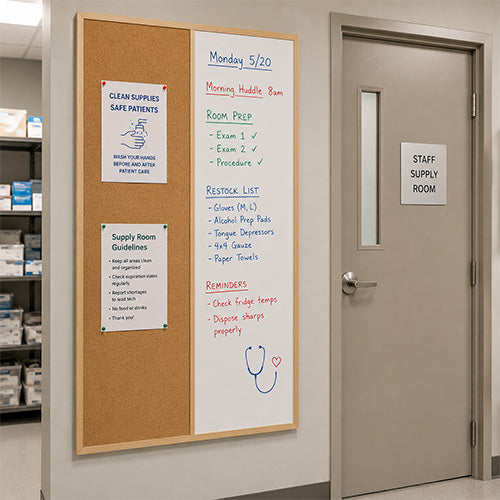 CLEAN SUPPLIES
SAFE PATIENTS
WASH YOUR HANDS
BEFORE AND AFTER
PATIENT CARE
Supply Room
Guidelines
• Keep all areas clean
and organized
• Check expiration dates
regularly
• Report shortages
to lead tech
• No food or drinks
• Thank you!
Monday 5/20
Morning Huddle 8am
ROOM PREP
- Exam 1 ✓
- Exam 2 ✓
- Procedure ✓
RESTOCK LIST
- Gloves (M, L)
- Alcohol Prep Pads
- Tongue Depressors
- 4x4 Gauze
- Paper Towels
REMINDERS
- Check fridge temps
- Dispose sharps
properly
STAFF
SUPPLY
ROOM